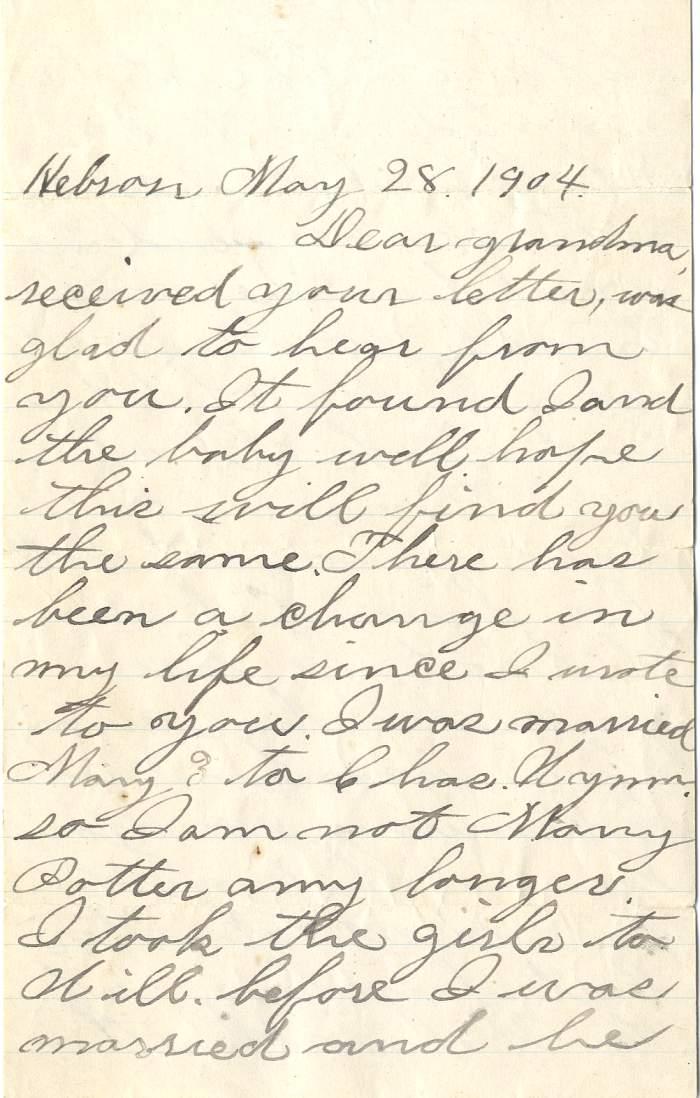 Hebron May 28. 1904.
Dear grandma,
received your letter, was
glad to hear from
you. It found I and
the baby well hope
this will find you
the same. There has
been a change in
my life since I wrote
to you. I was married
May 3 to Chas. Wynn.
so I am not Mary
Potter any longer.
I took the girls to
Will. before I was
married and he